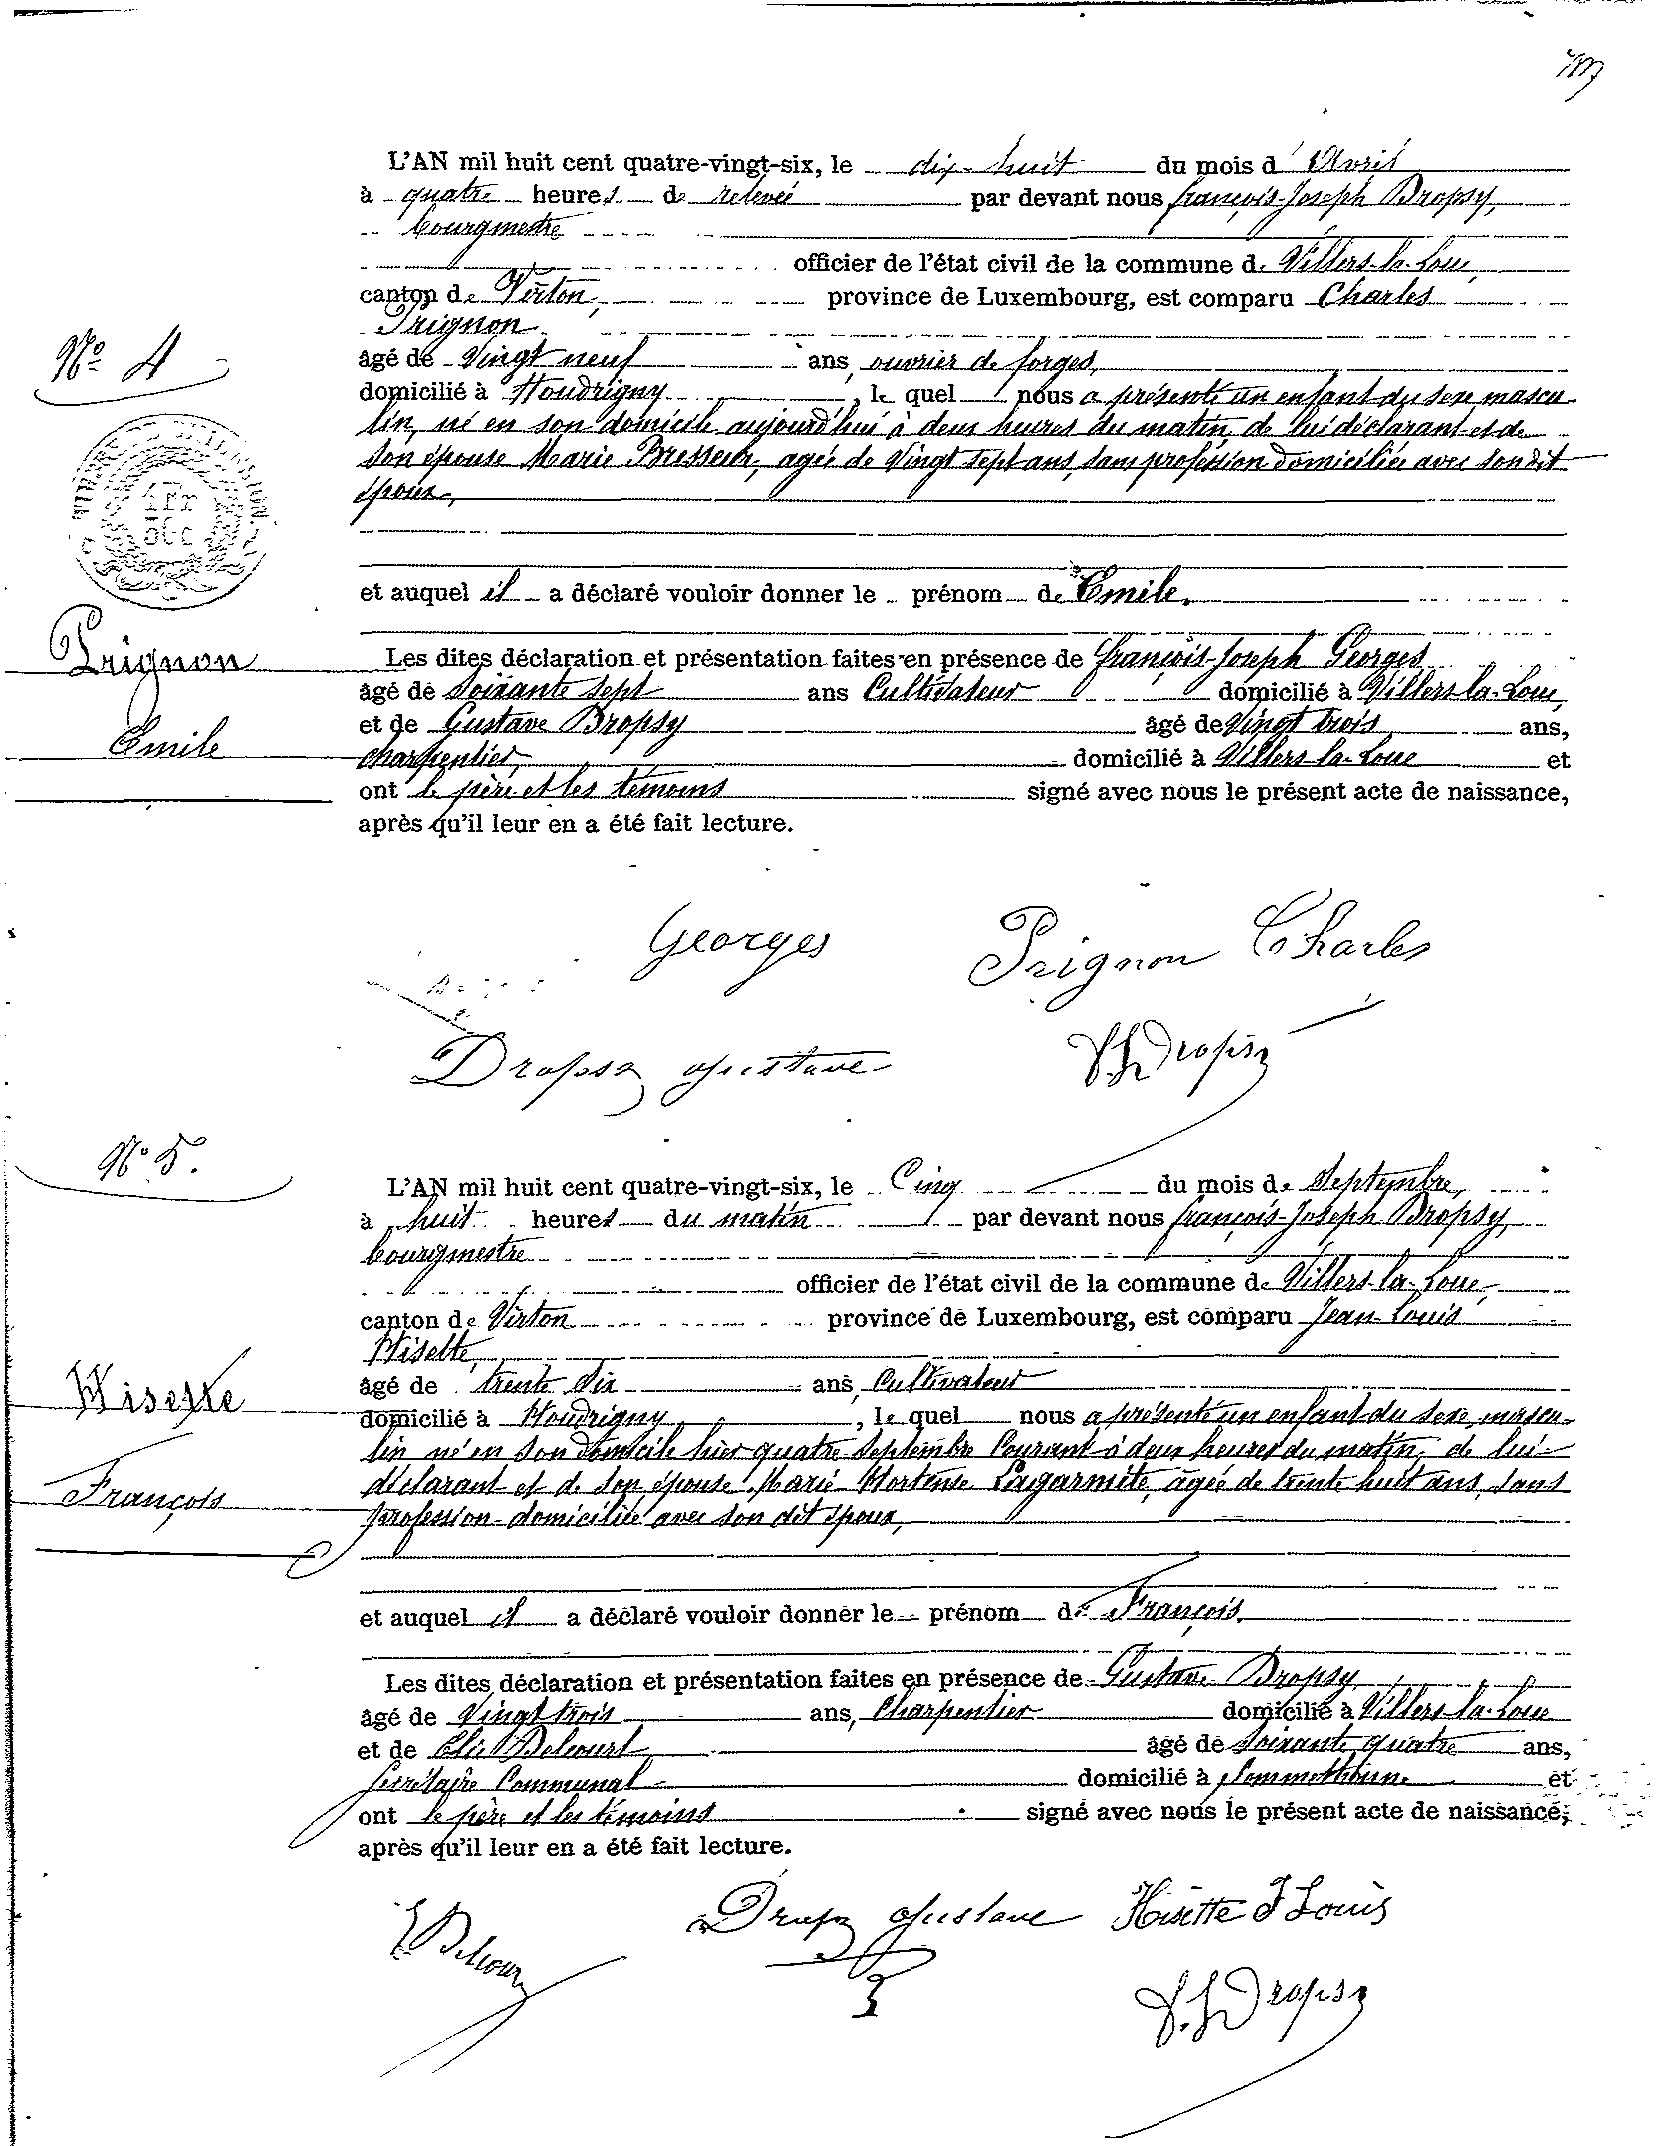 L'AN mil huit cent quatre-vingt-six, le dix-huit du mois d'Avril
à quatre heures de relevée par devant nous françois-Joseph Dropsy,
bourgmestre
officier de l'état civil de la commune de Villers-la-Loue,
canton de Virton, province de Luxembourg, est comparu Charles
Prignon
âgé de Vingt neuf ans, ouvrier de forges,
N° 4
domicilié à Houdrigny, le quel nous a présenté un enfant du sexe mascu-
lin, né en son domicile aujourd'hui à deux heures du matin, de lui déclarant et de
son épouse Marie Bresseur, agée de Vingt sept ans, sans profession domiciliée avec son dit
époux,
1 Fr
50 c
et auquel il a déclaré vouloir donner le prénom de Emile.
Prignon
Emile
Les dites déclaration et présentation faites en présence de françois-Joseph Georges
âgé de Soixante sept ans Cultivateur domicilié à Villers-la-Loue,
et de Gustave Dropsy âgé de Vingt trois ans,
charpentier, domicilié à Villers-la-Loue et
ont le père et les témoins signé avec nous le présent acte de naissance,
après qu'il leur en a été fait lecture.
Georges Prignon Charles
Dropsy Gustave F J Dropsy
N° 5.
L'AN mil huit cent quatre-vingt-six, le Cinq du mois de Septembre,
à huit heures du matin par devant nous françois-Joseph Dropsy,
bourgmestre
officier de l'état civil de la commune de Villers-la-Loue,
canton de Virton province de Luxembourg, est comparu Jean-Louis
Hisette,
âgé de trente six ans, Cultivateur
Hisette
François
domicilié à Houdrigny, le quel nous a présenté un enfant du sexe mascu-
lin né en son domicile hier quatre Septembre Courant à deux heures du matin, de lui
déclarant et de son épouse Marie Hortense Lagarmite, agée de trente huit ans, sans
profession domiciliée avec son dit époux,
et auquel il a déclaré vouloir donner le prénom de François.
Les dites déclaration et présentation faites en présence de Gustave Dropsy,
âgé de Vingt trois ans, Charpentier domicilié à Villers-la-Loue
et de Elie Delcourt, âgé de Soixante quatre ans,
Secrétaire Communal domicilié à Sommethonne et
ont le père et les témoins signé avec nous le présent acte de naissance,
après qu'il leur en a été fait lecture.
E Delcour Dropsy Gustave Hisette J Louis
F. J Dropsy